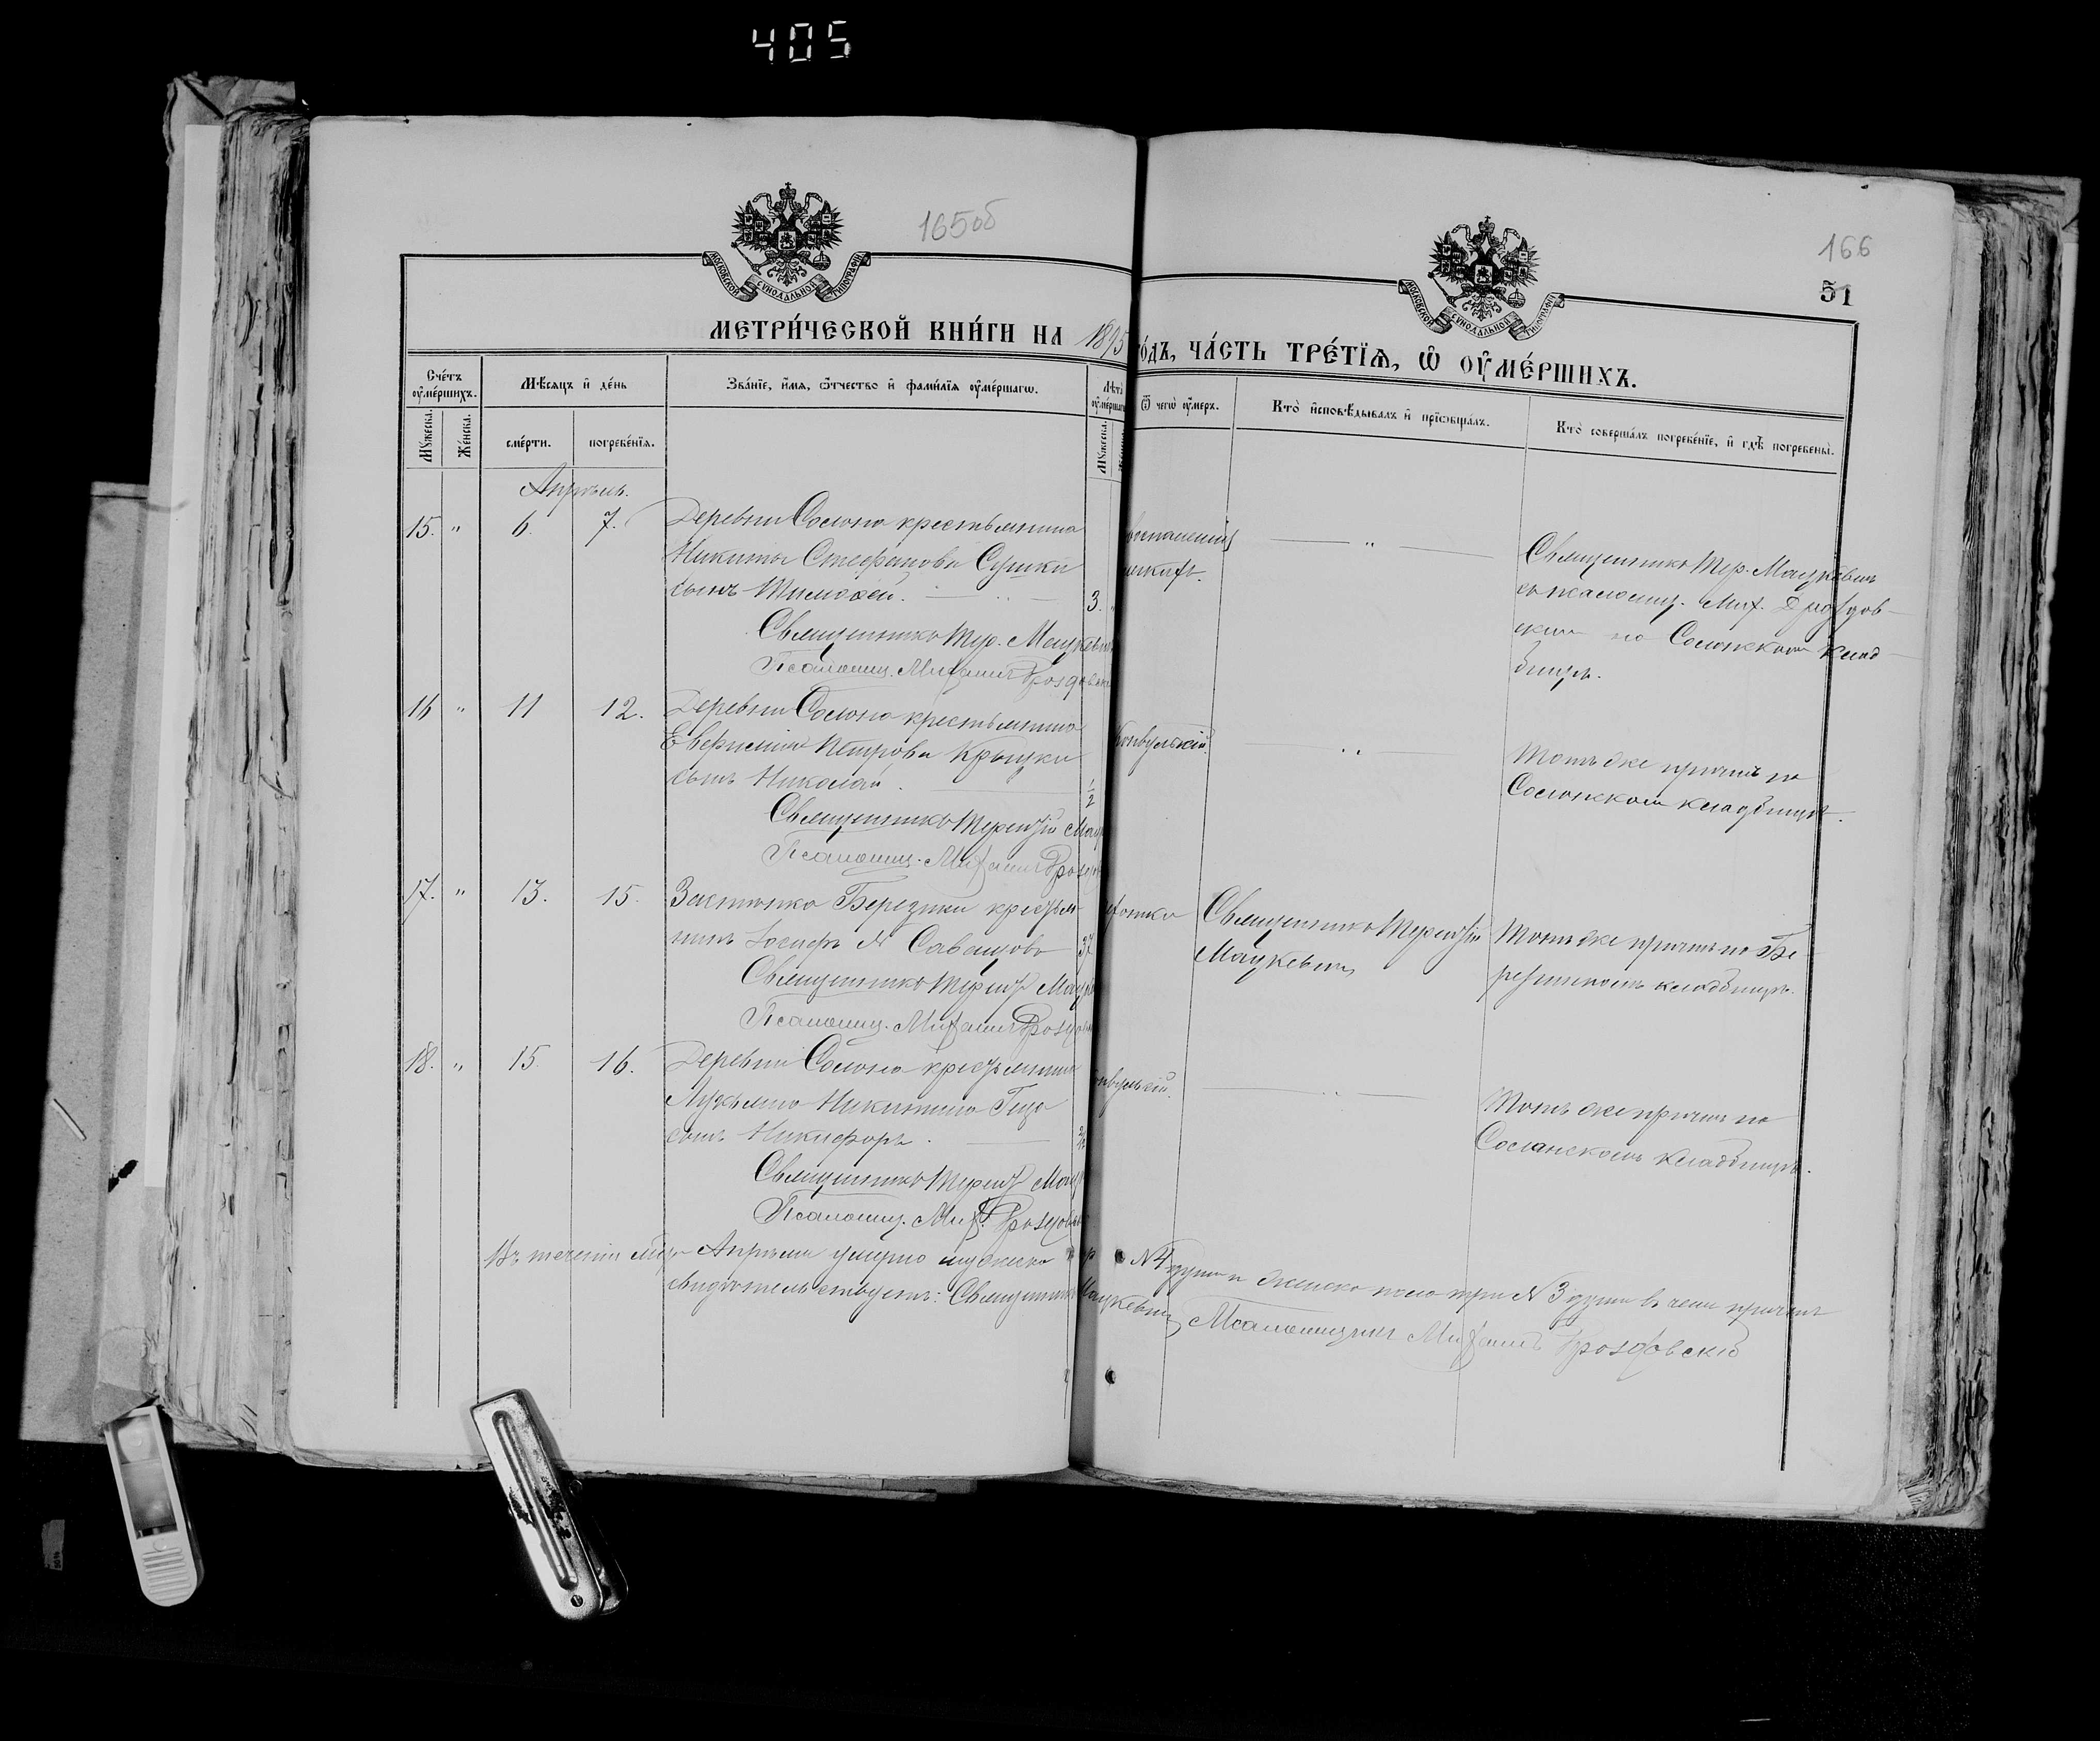 405
165об
166
51
МОСКОВСКОЙ СѴНОДАЛЬНОЙ ТИПОГРАФІИ
МОСКОВСКОЙ СѴНОДАЛЬНОЙ ТИПОГРАФІИ
МЕТРИ́ЧЕСКОЙ КНИ́ГИ НА 1895
ГО́ДЪ, ЧА́СТЬ ТРЕ́ТЇѦ, Ѽ ОУ҆МЕ́РШИХЪ.
Сче́тъ оу҆ме́ршихъ.
Мѣ́сяцъ и҆ де́нь
Зва́нїе, и҆́мя, ѻ҆́тчество и҆ фами́лїя оу҆ме́ршагѡ.
Лѣта̀ оу҆ме́ршагѡ
Ѿ чегѡ̀ оу҆́меръ.
Кто̀ и҆сповѣ́дывалъ и҆ прїѡбща́лъ.
Кто̀ соверша́лъ погребе́нїе, и҆ гдѣ̀ погребены̀.
Мꙋ́жеска.
Же́нска.
сме́рти.
погребе́нїя.
Мꙋ́жеска.
Апрѣль.
15. " 6. 7. Деревни Сосона крестьянина
Никиты Стефанова Сушки
сынъ Тимофей. 3.
Священникъ Тер. Мацкевич
Псаломщ. Михаилъ Дроздовск
Священникъ Тер. Мацкевичъ
съ псаломщ. Мих. Дроздов-
скимъ на Сосонскомъ клад-
бищѣ.
16 " 11 12. Деревни Сосона крестьянина
Петрова Крыцки
сынъ Николай. 1/2
Священникъ Терентій Мац
Псаломщ. Михаилъ Дрозд
конвульсій
Тотъ же причтъ на
Сосонскомъ кладбищѣ.
17. " 13. 15. Застѣнка Березики крестья-
нинъ Іосифъ N Савацовъ 37
Священникъ Терент Мацк
Псаломщ. Михаилъ Дроздов
Священникъ Терентій
Мацкевичъ
Тотъ же причтъ на Бе-
резинскомъ кладбищѣ.
18. " 15. 16. Деревни Сосона крестьянина
Лукьяна Никитина
сынъ Никифоръ.
Священникъ Терент Мацк
Псаломщ. Мих. Дроздов
Тотъ же причтъ на
Сосонскомъ кладбищѣ.
Въ теченіи мѣс. Апрѣля умерло мужеска N 4 души и женска пола три N 3 души въ чемъ причтъ
свидѣтельствуетъ: Священникъ Мацкевичъ Псаломщикъ Михаилъ Дроздовскій